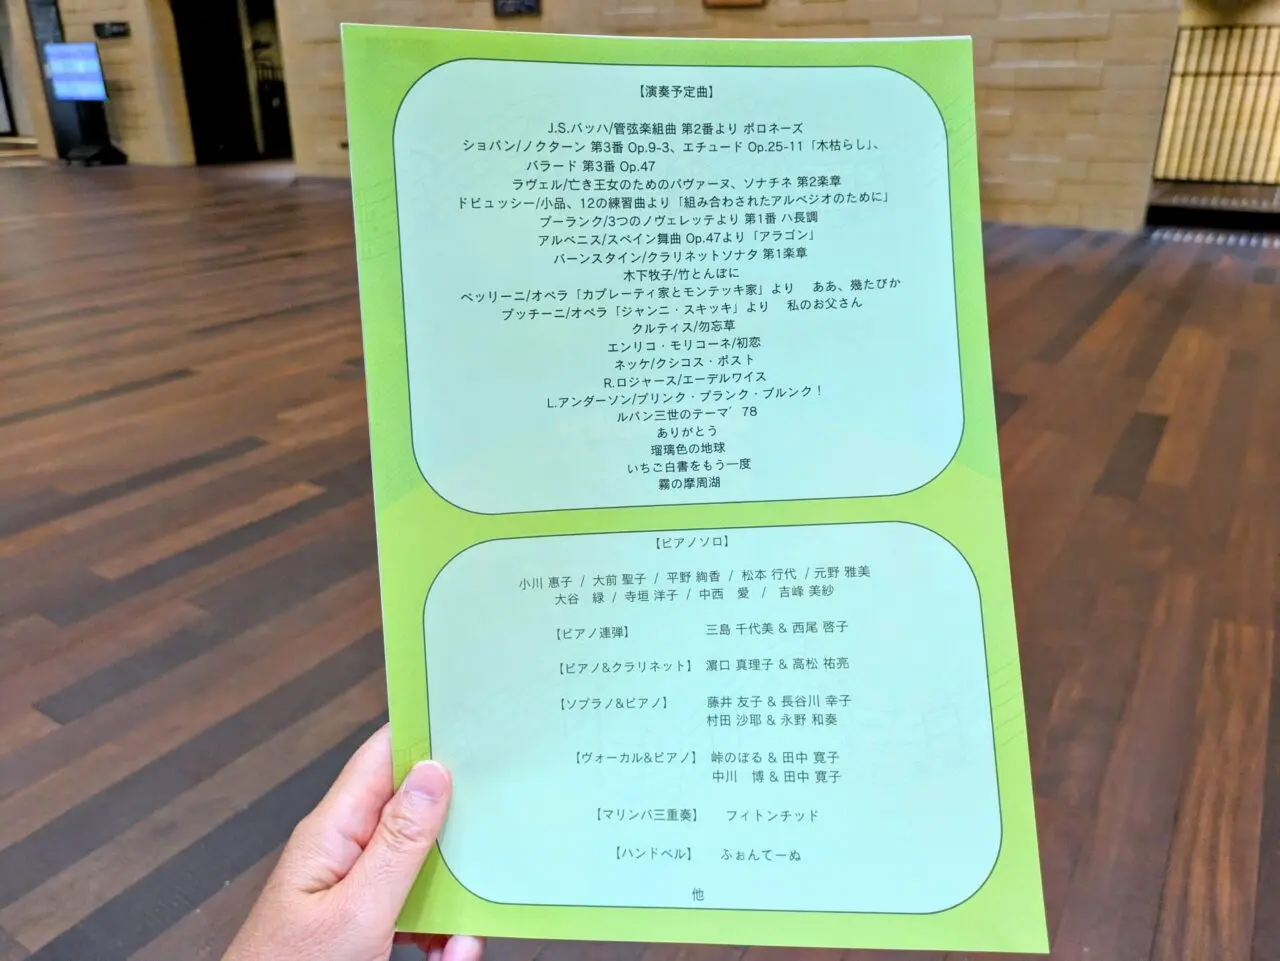 【演奏予定曲】
J.S.バッハ/管弦楽組曲 第2番より ポロネーズ
ショパン/ノクターン 第3番 Op.9-3、エチュード Op.25-11「木枯らし」、
バラード 第3番 Op.47
ラヴェル/亡き王女のためのパヴァーヌ、ソナチネ 第2楽章
ドビュッシー/小品、12の練習曲より「組み合わされたアルペジオのために」
プーランク/3つのノヴェレッテより 第1番 ハ長調
アルベニス/スペイン舞曲 Op.47より「アラゴン」
バーンスタイン/クラリネットソナタ 第1楽章
木下牧子/竹とんぼに
ベッリーニ/オペラ「カプレーティ家とモンテッキ家」より　ああ、幾たびか
プッチーニ/オペラ「ジャンニ・スキッキ」より　私のお父さん
クルティス/勿忘草
エンリコ・モリコーネ/初恋
ネッケ/クシコス・ポスト
R.ロジャース/エーデルワイス
L.アンダーソン/プリンク・プランク・プルンク！
ルパン三世のテーマ´78
ありがとう
瑠璃色の地球
いちご白書をもう一度
霧の摩周湖
【ピアノソロ】
小川 恵子 / 大前 聖子 / 平野 絢香 / 松本 行代 / 元野 雅美
大谷　緑 / 寺垣 洋子 / 中西　愛 / 吉峰 美紗
【ピアノ連弾】　三島 千代美 & 西尾 啓子
【ピアノ&クラリネット】 濵口 真理子 & 高松 祐亮
【ソプラノ&ピアノ】　藤井 友子 & 長谷川 幸子
村田 沙耶 & 永野 和奏
【ヴォーカル&ピアノ】 峠のぼる & 田中 寛子
中川　博 & 田中 寛子
【マリンバ三重奏】　フィトンチッド
【ハンドベル】　ふぉんてーぬ
他